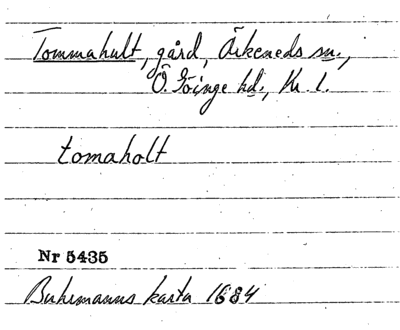 Tommahult, gård, Örkeneds sn.,
Ö. Göinge hd., Kr. l.
tomaholt
Nr 5435
Buhrmanns karta 1684